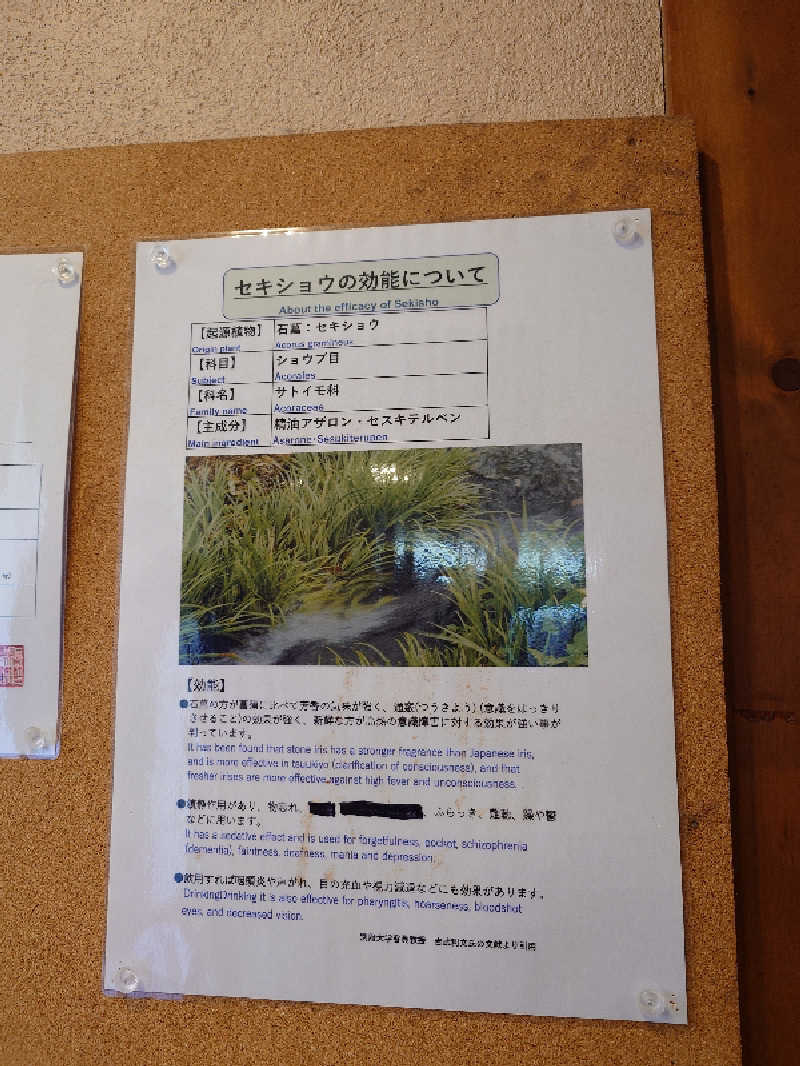 セキショウの効能について
About the efficacy of Sekisho
【起源植物】 石菖：セキショウ
Origin plant Acorus gramineus
【科目】 ショウブ目
Subject Acorales
【科名】 サトイモ科
Family name Acoraceae
【主成分】 精油アザロン・セスキテルペン
Main ingredient Asarone・Sesukiterupen
【効能】
●石菖の方が菖蒲に比べて芳香の気味が強く、通竅(つうきよう)(意識をはっきり
させること)の効果が強く、新鮮な方が高熱の意識障害に対する効果が強い事が
判っています。
It has been found that stone iris has a stronger fragrance than Japanese iris,
and is more effective in tsuukiyo (clarification of consciousness), and that
fresher irises are more effective against high fever and unconsciousness.
●鎮静作用があり、物忘れ、 、ふらつき、難聴、躁や鬱
などに用います。
It has a sedative effect and is used for forgetfulness, pocket, schizophrenia
(dementia), faintness, deafness, mania and depression.
●飲用すれば咽頭炎や声がれ、目の充血や視力減退などにも効果があります。
DrinkingDrinking it is also effective for pharyngitis, hoarseness, bloodshot
eyes, and decreased vision.
の文献より引用